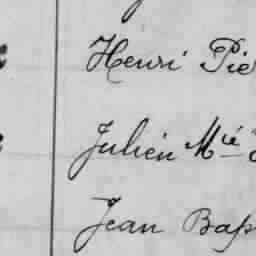 Henri Pie
Julien Mié
Jean Bap